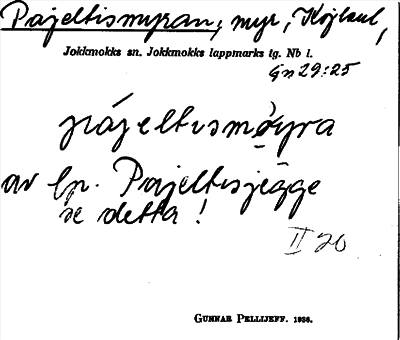 Pajeltismyran, myr, Köjlaul,
Jokkmokks sn. Jokkmokks lappmarks tg. Nb l.
Gn 29:25
pájeltɩsmøyra
av lp. Pajeltisjeägge
se detta!
II 20
GUNNAR PELLIJEFF. 1936.